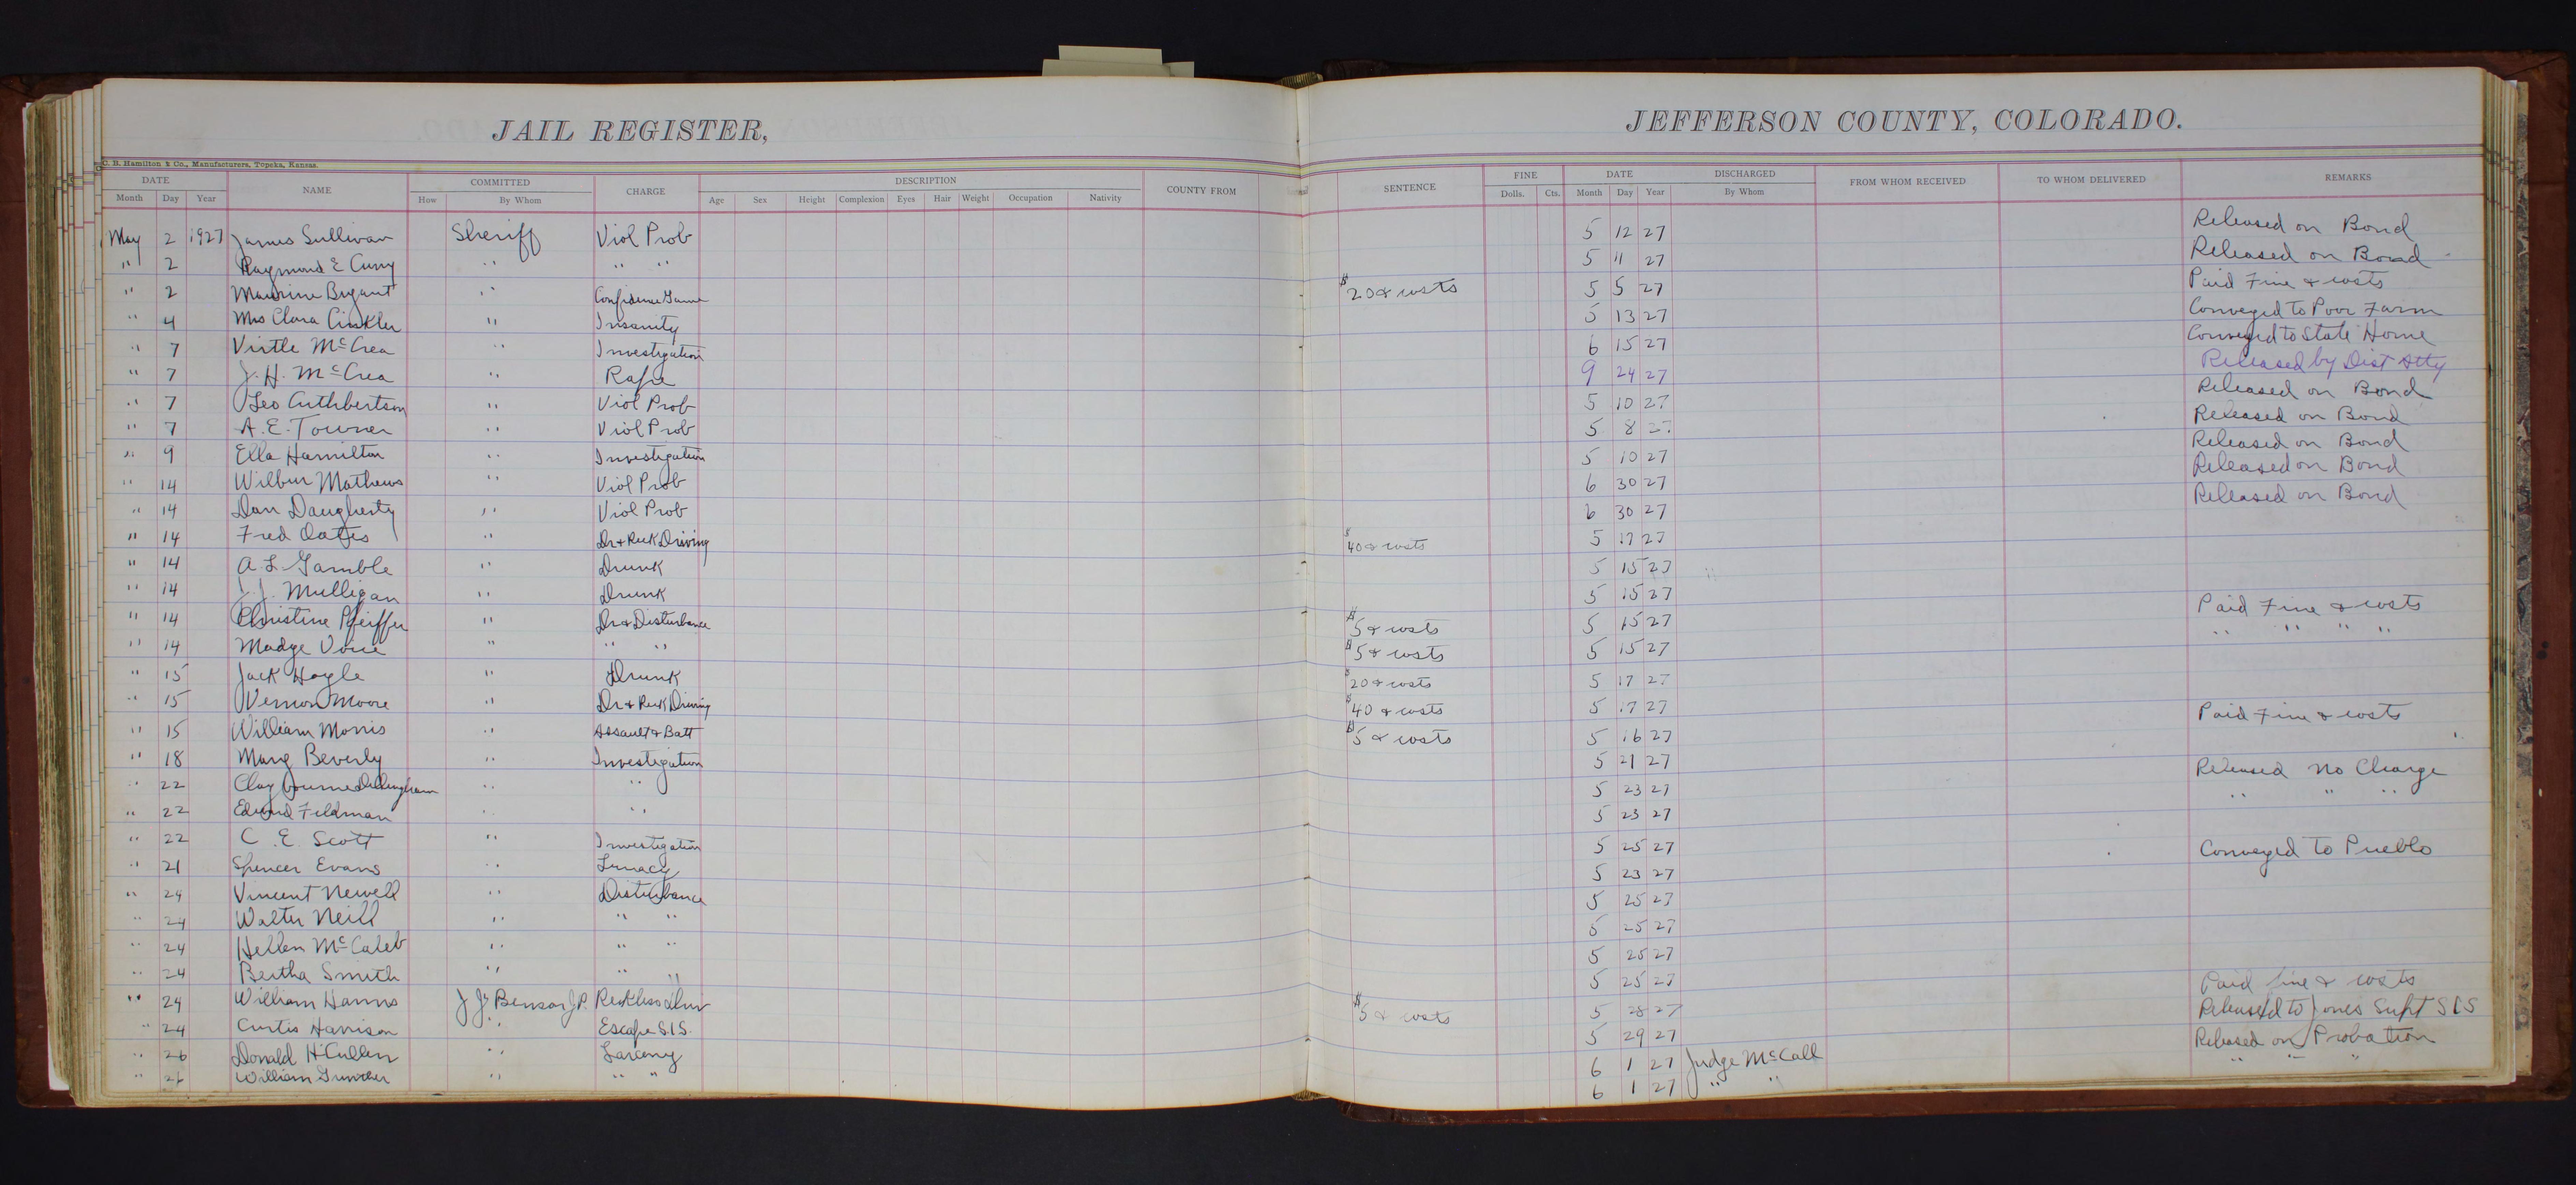 JAIL REGISTER,
JEFFERSON COUNTY, COLORADO.
C. B. Hamilton & Co., Manufacturers, Topeka, Kansas.
DATE NAME COMMITTED CHARGE DESCRIPTION COUNTY FROM SENTENCE FINE DATE DISCHARGED FROM WHOM RECEIVED TO WHOM DELIVERED REMARKS
Month Day Year How By Whom Age Sex Height Complexion Eyes Hair Weight Occupation Nativity Dolls. Cts. Month Day Year By Whom
May 2 1927 James Sullivan Sheriff Viol Prob 5 12 27 Released on Bond
" 2 Raymond E Curry " " " 5 11 27 Released on Bond
" 2 Maurine Bryant " Confidence Game $20 & costs 5 5 27 Paid Fine & costs
" 4 Mrs Clara Cinkler " Insanity 5 13 27 Conveyed to Poor Farm
" 7 Virtle McCrea " Investigation 6 15 27 Conveyed to State Home
" 7 J. H. McCrea " Rape 9 24 27 Released by Dist Atty
" 7 Leo Cuthbertson " Viol Prob 5 10 27 Released on Bond
" 7 A. E. Towner " Viol Prob 5 8 27 Released on Bond
" 9 Ella Hamilton " Investigation 5 10 27 Released on Bond
" 14 Wilbur Mathews " Viol Prob 6 30 27 Released on Bond
" 14 Dan Daugherty " Viol Prob 6 30 27 Released on Bond
" 14 Fred Oates " Dr & Reck Driving $40 & costs 5 17 27
" 14 A L Gamble " Drunk 5 15 27 "
" 14 J. J. Mulligan " Drunk 5 15 27
" 14 Christine Pfeiffer " Dr & Disturbance $5 & costs 5 15 27 Paid Fine & costs
" 14 Madge Voice " " " $5 & costs 5 15 27 " " " "
" 15 Jack Hoyle " Drunk $20 & costs 5 17 27
" 15 Vernon Moore " Dr & Reck Driving $40 & costs 5 17 27
" 15 William Morris " Assault & Batt $5 & costs 5 16 27 Paid Fine & costs
" 18 Marg Beverly " Investigation 5 21 27
" 22 Claybourne Dillingham " " 5 23 27 Released No Charge
" 22 Edward Feldman " " 5 23 27 " " "
" 22 C. E. Scott " Investigation 5 25 27
" 21 Spencer Evans " Lunacy 5 23 27 Conveyed to Pueblo
" 24 Vincent Newell " Disturbance 5 25 27
" 24 Walter Neill " " " 5 25 27
" 24 Hellen McCaleb " " " 5 25 27
" 24 Bertha Smith " " " 5 25 27
" 24 William Harms J J Benson J.P. Reckless Driv $5 & costs 5 28 27 Paid fine & costs
" 24 Curtis Harrison " Escape S.I.S. 5 29 27 Released to Jones Supt S I S
" 26 Donald McCullen " Larceny 6 1 27 Judge McCall Released on Probation
" 26 William " " " 6 1 27 " " " " "